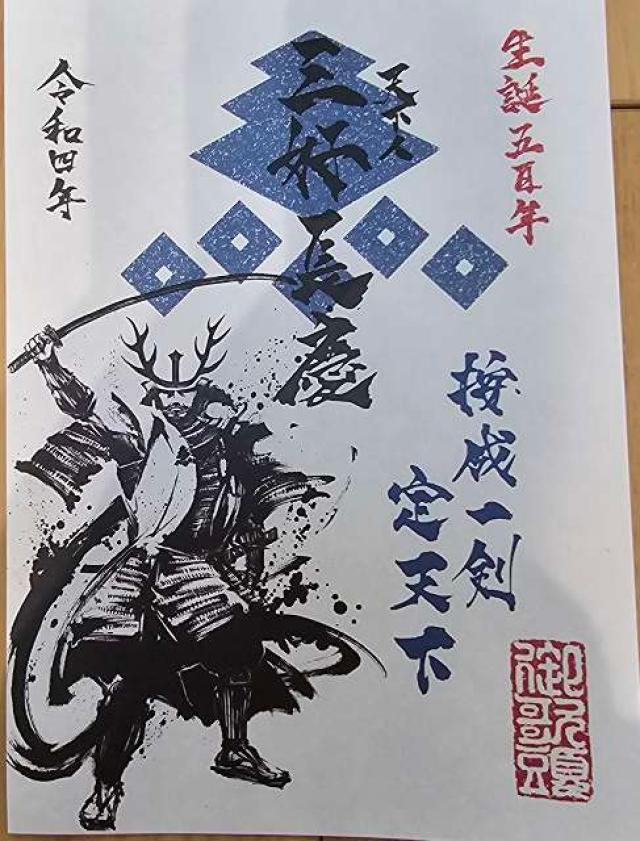 生誕五百年
天下人
三好長慶
令和四年
按成一剣
定天下
御歌頭